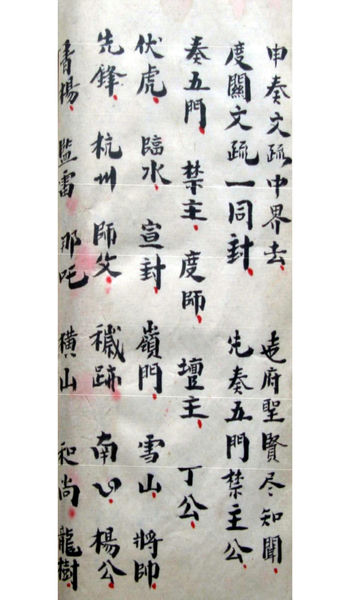 申奏文疏中界去 造府聖賢尽知聞
度關文疏一同封 先奏五門禁主公
奏五門 禁主 度師 壇主 丁公
伏虎 臨水 宣封 嶺門 雪山 將帥
先鋒 杭州 師父 穢跡 南 楊公
楊 監雷 那吒 橫山 和尚 龍樹